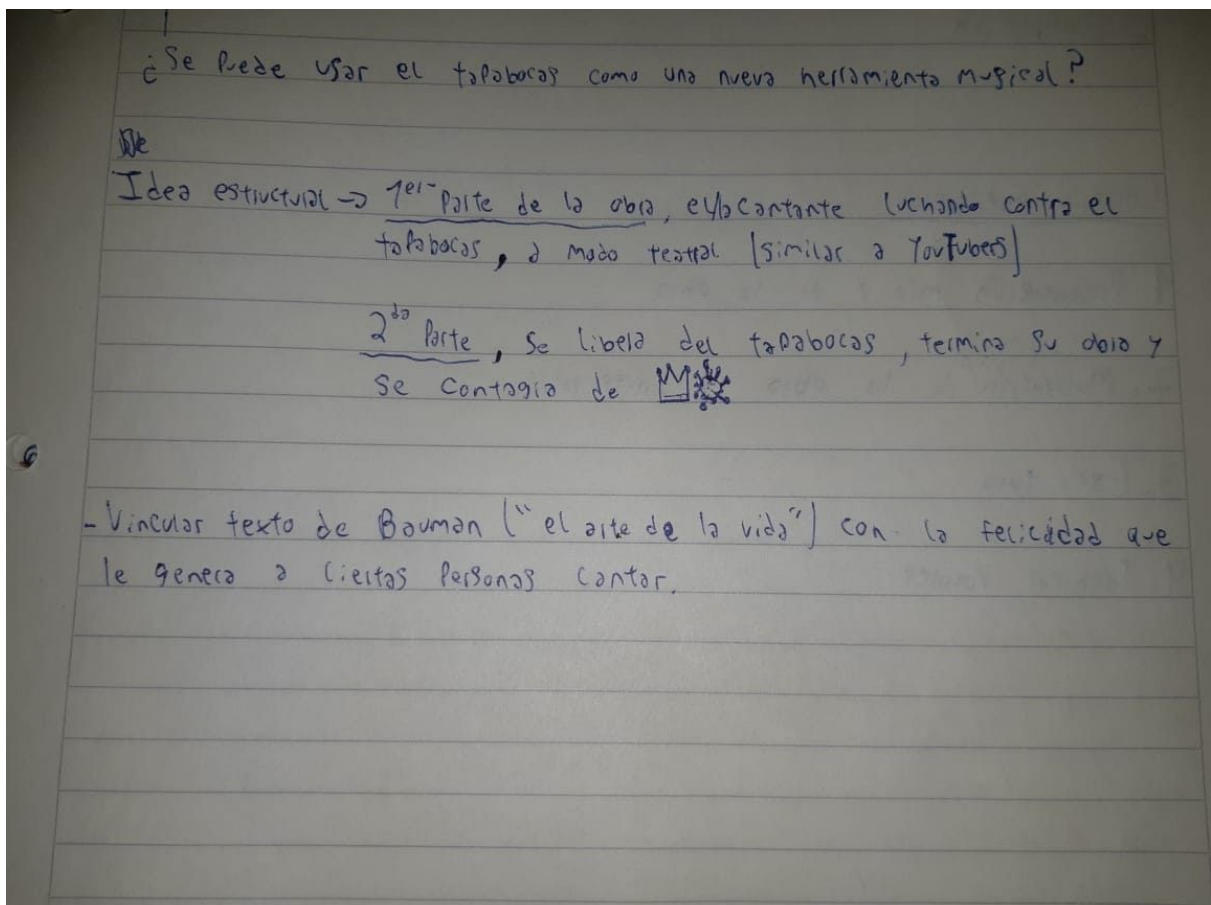 ¿Se Puede usar el tapabocas como una nueva herramienta musical?
Idea estructural → 1er Parte de la obra, el/la cantante luchando contra el
tapabocas, a modo teatral (similar a YouTubers)
2da Parte, se libera del tapabocas, termina su obra y
se contagia de
- Vincular texto de Bauman ("el arte de la vida") con la felicidad que
le genera a ciertas Personas cantar.